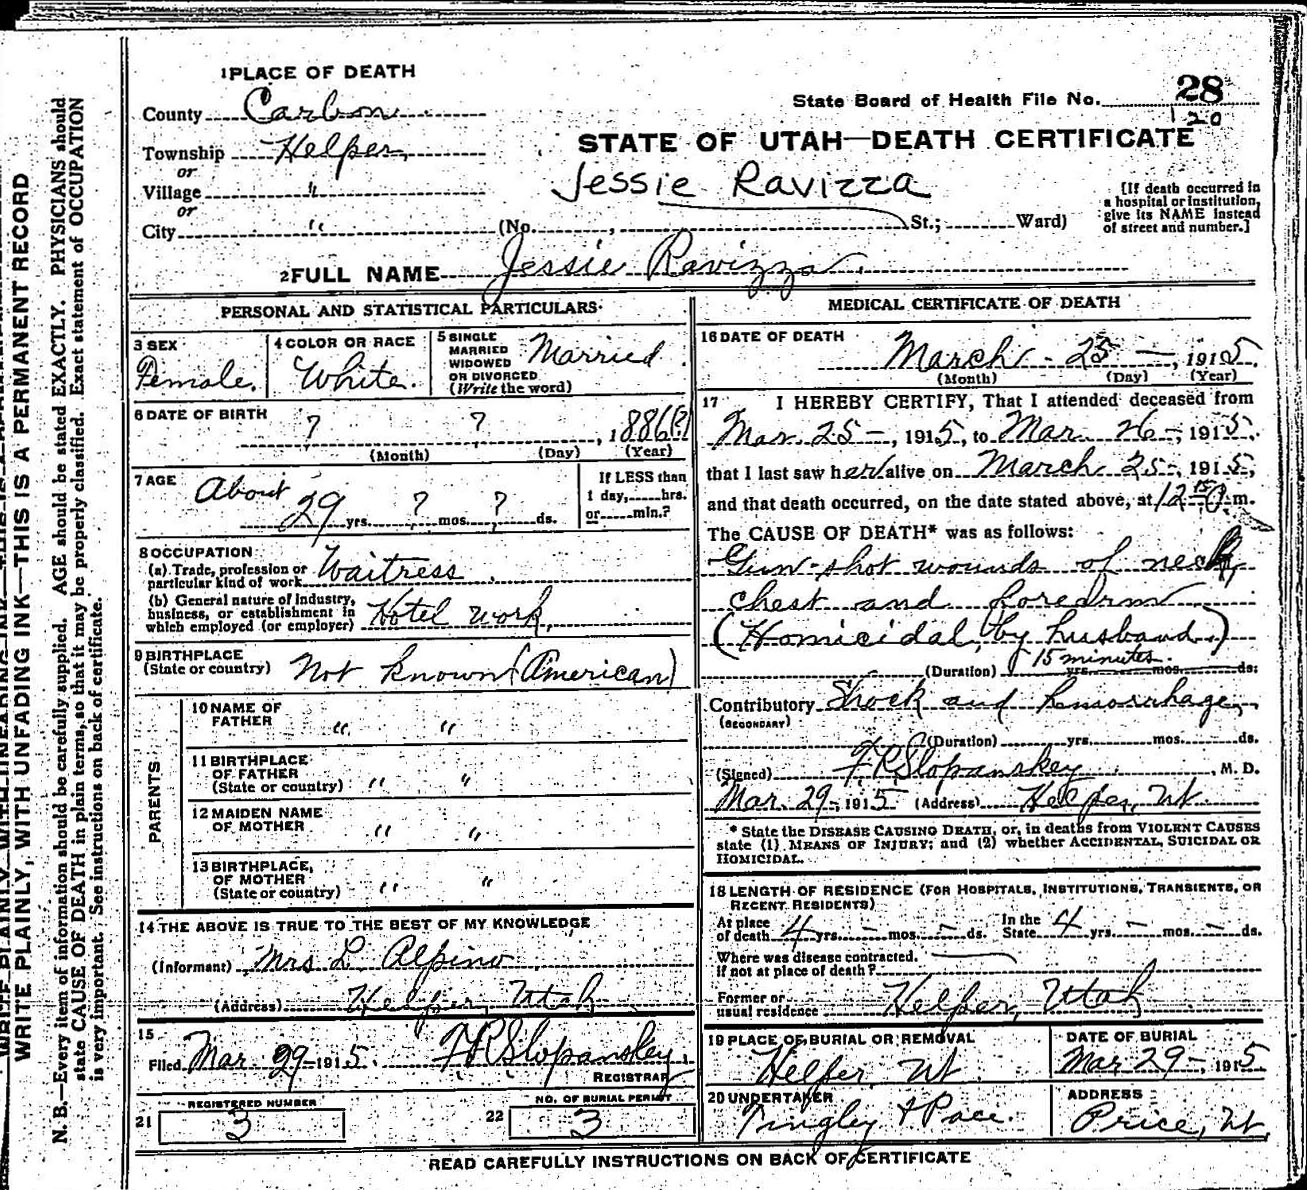 1 PLACE OF DEATH
County Carbon
Township Helper,
or
Village "
or
City "
(No. , St.; Ward)
State Board of Health File No. 28
120
STATE OF UTAH—DEATH CERTIFICATE
Jessie Ravizza
[If death occurred in
a hospital or institution,
give its NAME instead
of street and number.]
2 FULL NAME Jessie Ravizza
PERSONAL AND STATISTICAL PARTICULARS
3 SEX
Female.
4 COLOR OR RACE
White.
5 SINGLE
MARRIED
WIDOWED
OR DIVORCED
(Write the word)
Married
6 DATE OF BIRTH
? ? , 1886(?)
(Month) (Day) (Year)
7 AGE
About
29 yrs. ? mos. ? ds.
If LESS than
1 day, hrs.
or min.?
8 OCCUPATION
(a) Trade, profession or
particular kind of work Waitress
(b) General nature of Industry,
business, or establishment in
which employed (or employer) Hotel work,
9 BIRTHPLACE
(State or country) Not known (American)
PARENTS
10 NAME OF
FATHER " "
11 BIRTHPLACE
OF FATHER
(State or country) " "
12 MAIDEN NAME
OF MOTHER " "
13 BIRTHPLACE,
OF MOTHER
(State or country) " "
14 THE ABOVE IS TRUE TO THE BEST OF MY KNOWLEDGE
(Informant) Mrs L. Alpino
(Address) Helper, Utah
15
Filed Mar 29- 1915. F.R. Slopanskey,
REGISTRAR
21 REGISTERED NUMBER
3
22 NO. OF BURIAL PERMIT
3
MEDICAL CERTIFICATE OF DEATH
16 DATE OF DEATH
March - 25 -, 1915.
(Month) (Day) (Year)
17 I HEREBY CERTIFY, That I attended deceased from
Mar. 25-, 1915, to Mar. 26-, 1915.
that I last saw her alive on March 25-, 1915,
and that death occurred, on the date stated above, at 12 15 P. m.
The CAUSE OF DEATH* was as follows:
Gun-shot wounds of neck,
chest and forearm
(Homicidal, by husband.)
(Duration) 15 minutes yrs. mos. ds.
Contributory Shock and hemorrhage,
(SECONDARY)
(Duration) yrs. mos. ds.
(Signed) F R Slopanskey, M. D.
Mar. 29-, 1915 (Address) Helper, Ut.
* State the DISEASE CAUSING DEATH, or, in deaths from VIOLENT CAUSES
state (1) MEANS OF INJURY; and (2) whether ACCIDENTAL, SUICIDAL OR
HOMICIDAL.
18 LENGTH OF RESIDENCE (FOR HOSPITALS, INSTITUTIONS, TRANSIENTS, OR
RECENT RESIDENTS)
At place
of death 4 yrs. - mos. - ds. In the
State 4 yrs. - mos. - ds.
Where was disease contracted.
if not at place of death?
Former or
usual residence Helper, Utah
19 PLACE OF BURIAL OR REMOVAL
Helper Ut.
DATE OF BURIAL
Mar 29-, 1915
20 UNDERTAKER
Tingley & Pace.
ADDRESS
Price, Ut,
READ CAREFULLY INSTRUCTIONS ON BACK OF CERTIFICATE
WRITE PLAINLY, WITH UNFADING INK—THIS IS A PERMANENT RECORD
N. B.—Every item of information should be carefully supplied. AGE should be stated EXACTLY. PHYSICIANS should
state CAUSE OF DEATH in plain terms, so that it may be properly classified. Exact statement of OCCUPATION
is very important. See instructions on back of certificate.